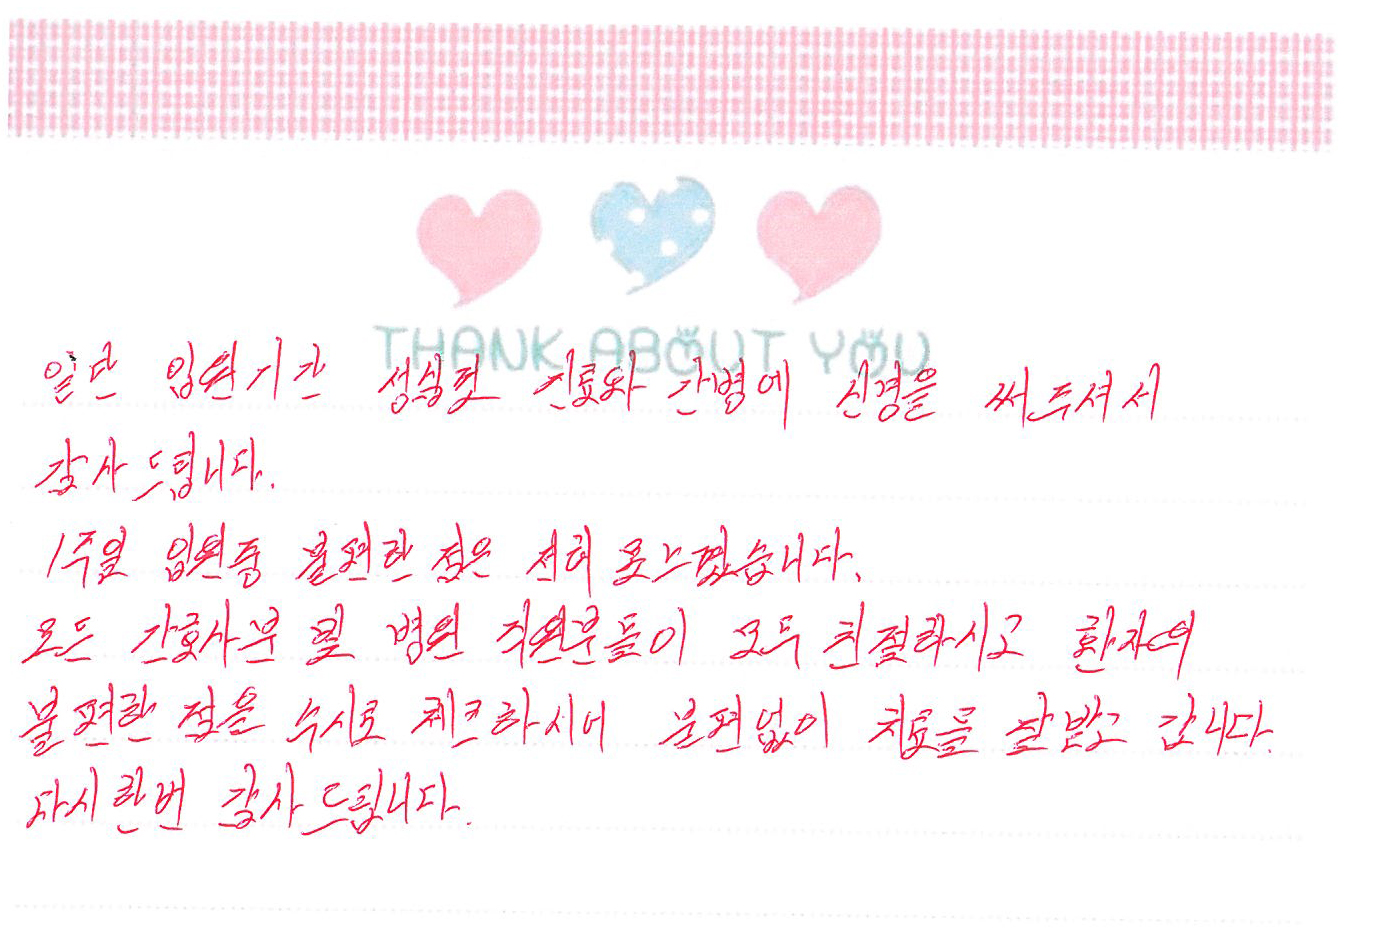 THANK ABOUT YOU
일단 입원기간 성실껏 진료와 간병에 신경을 써주셔서
감사드립니다.
1주일 입원중 불편한 점은 전혀 못느꼈습니다.
모든 간호사분 및 병원 직원분들이 모두 친절하시고 환자의
불편한 점을 수시로 체크하시어 불편없이 치료를 잘받고 갑니다.
다시한번 감사드립니다.